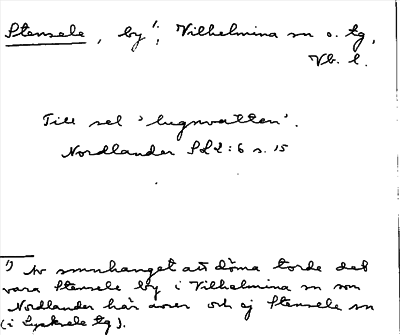 Stensele, by ¹⁾, Vilhelmina sn o. tg,
Vb. l.
Till sel 'lugnvatten'.
Nordlander SL 2:6 s. 15
¹⁾ Av smnhanget att döma torde det
vara Stensele by i Vilhelmina sn som
Nordlander här avser och ej Stensele sn
(i Lycksele tg).